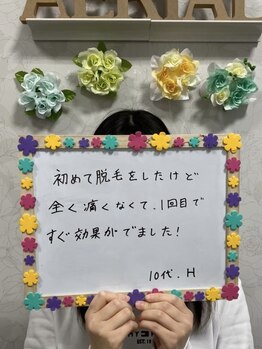 AERIAL
初めて脱毛をしたけど
全く痛くなくて、1回目で
すぐ効果がでました!
10代、H